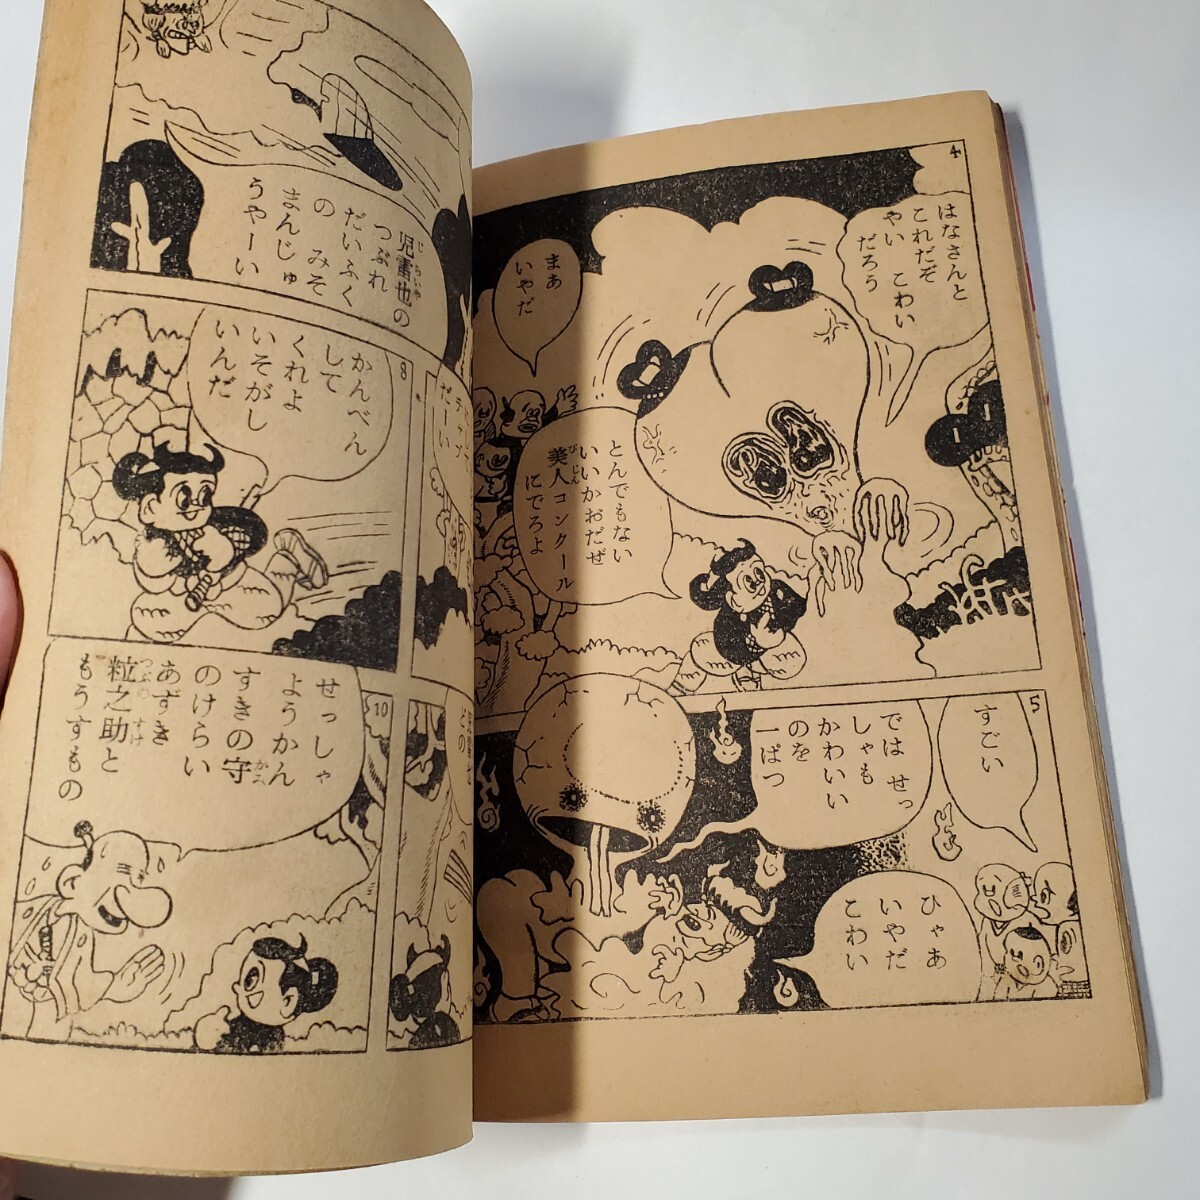 4
はなさんと
これだぞ
やい こわい
だろう
まあ
いやだ
とんでもない
いいかおだぜ
美人コンクール
びじん
にでろよ
5
すごい
では せっ
しゃも
かわいい
のを
一ぱつ
ひゃあ
いやだ
こわい
児雷也の
じらいや
つぶれ
だいふく
の みそ
まんじゅ
うやーい
8
かんべん
して
くれよ
いそがし
いんだ
だーい
10
せっしゃ
ようかん
すきの守
かみ
のけらい
あずき
粒之助と
つぶのすけ
もうすもの
どの